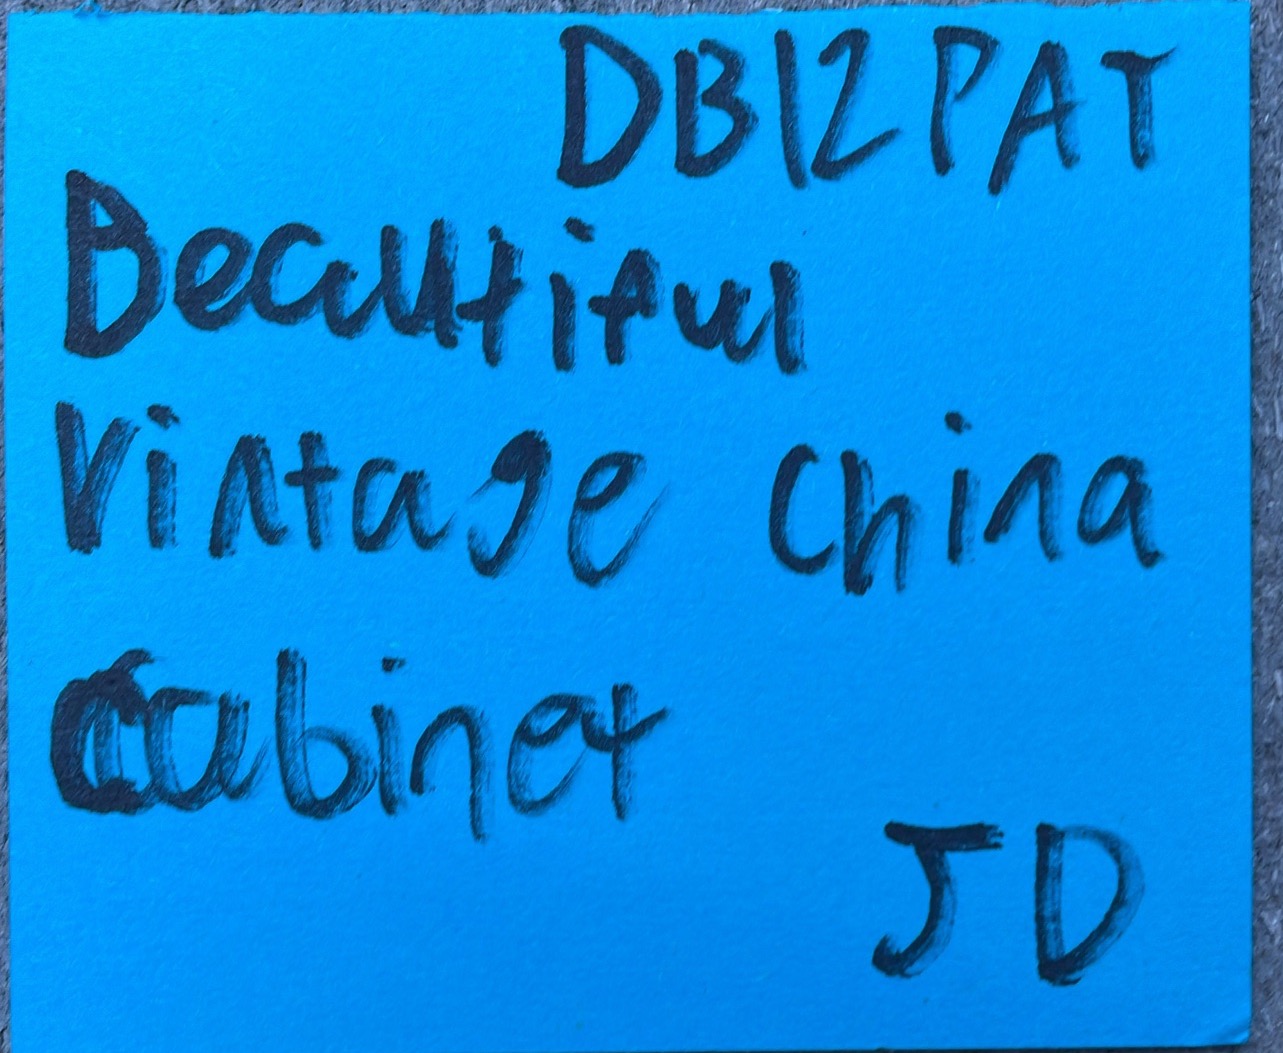 DB12PAT
Beautiful
Vintage China
Cabinet
JD